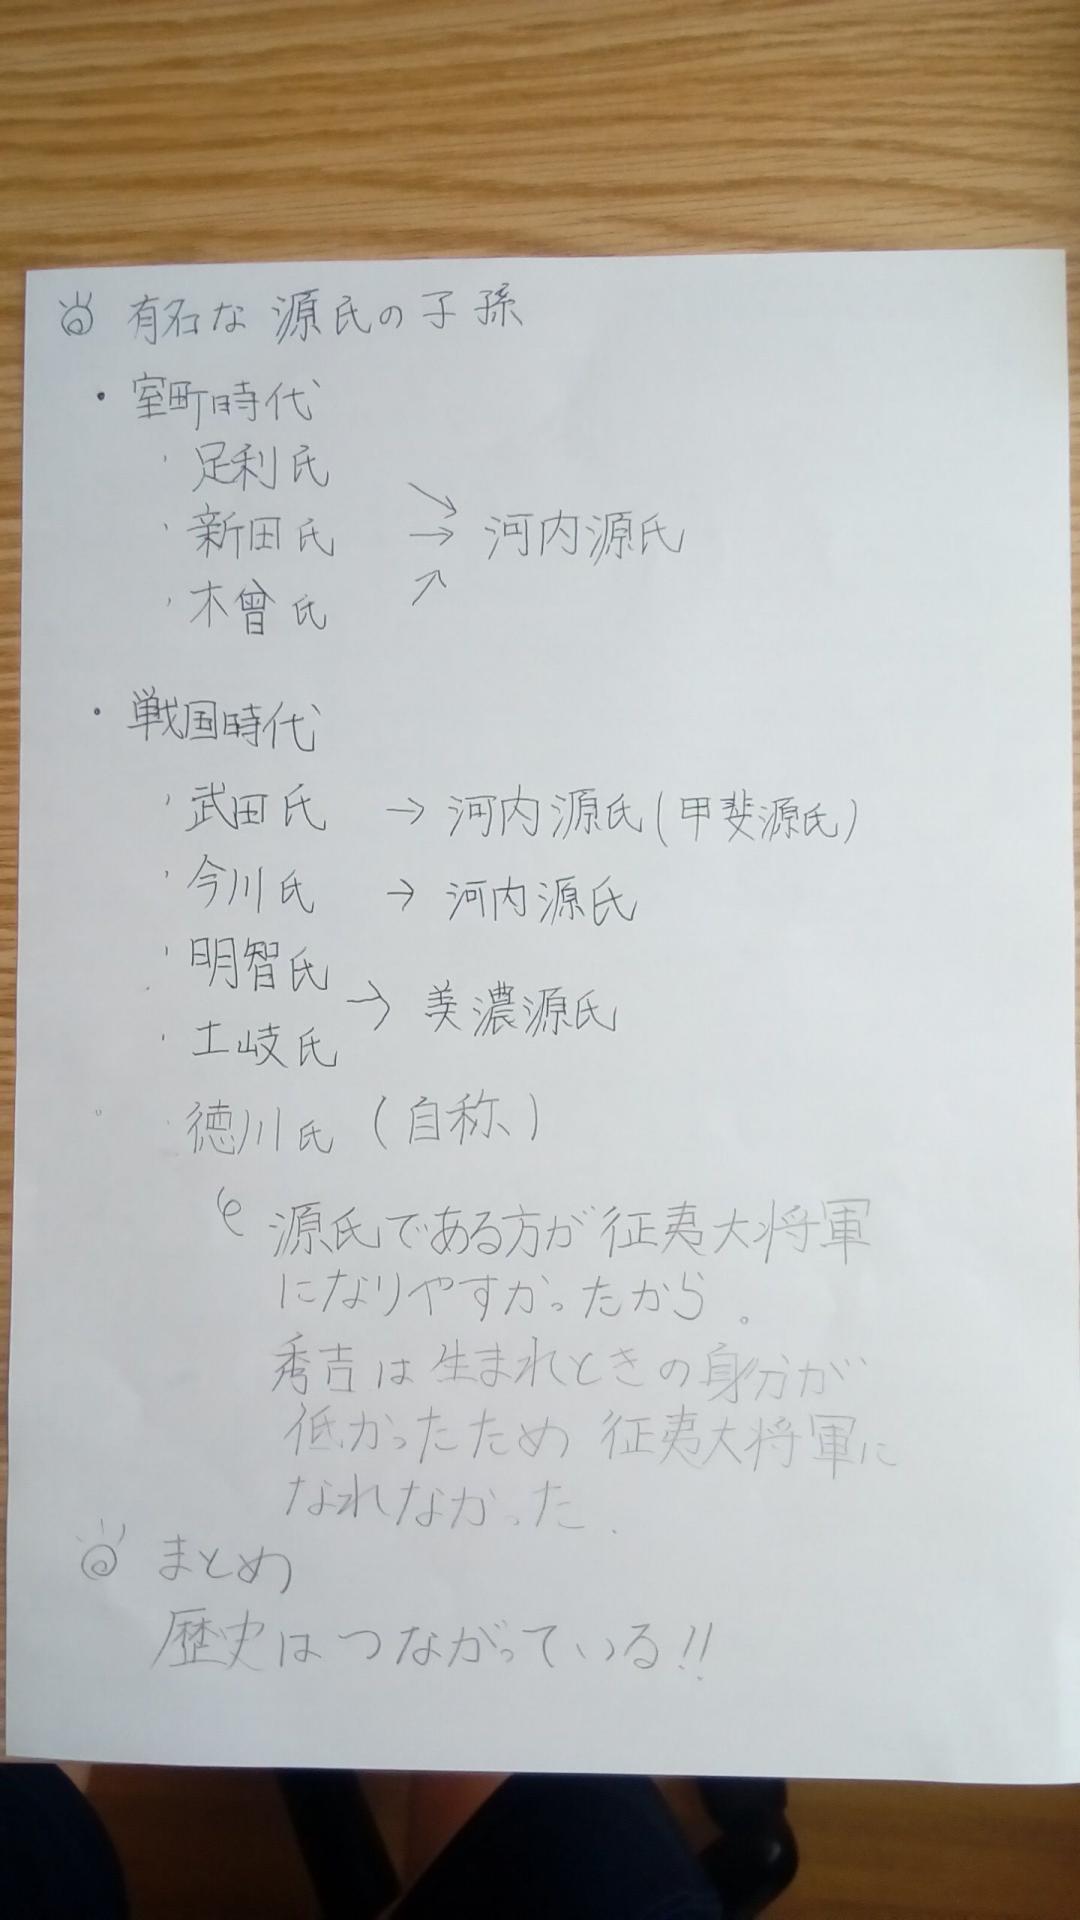 有名な源氏の子孫
・室町時代
・足利氏
・新田氏 → 河内源氏
・木曾氏
・戦国時代
・武田氏 → 河内源氏(甲斐源氏)
・今川氏 → 河内源氏
・明智氏
→ 美濃源氏
・土岐氏
徳川氏 (自称)
源氏である方が征夷大将軍
になりやすかったから。
秀吉は生まれときの身分が
低かったため征夷大将軍に
なれなかった.
まとめ
歴史はつながっている!!